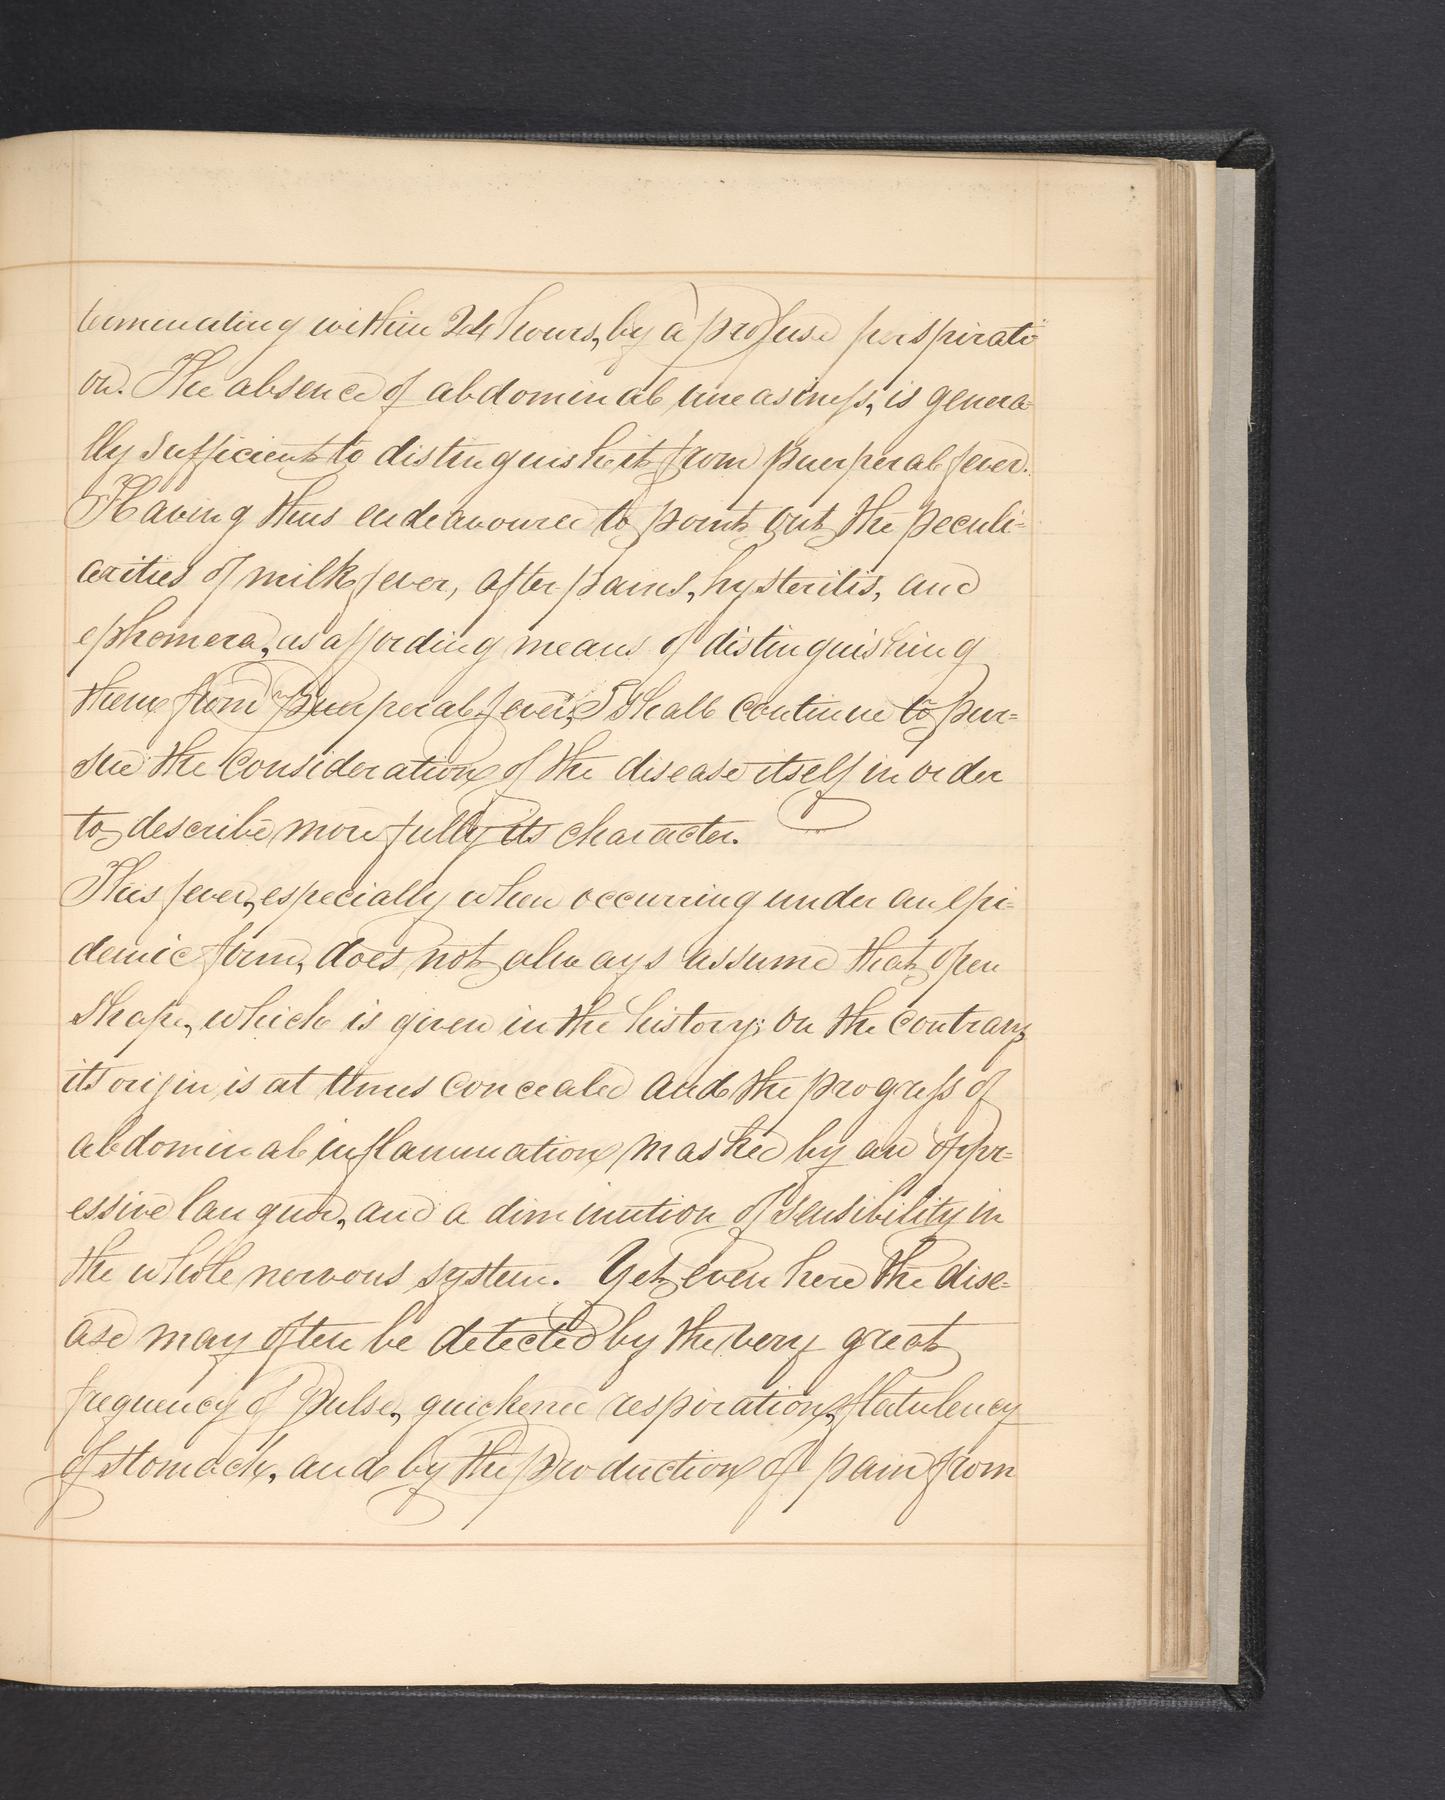 terminating within 24 hours, by a profuse perspirati=
on. The absence of abdominal uneasiness, is genera=
lly sufficient to distinguish it from puerperal fever.
Having thus endeavoured to point out the peculi=
arities of milk fever, after pains, hysteritis, and
ephemera, as affording means of distinguishing
them from puerperal fever, I shall continue to pur=
sue the consideration of the disease itself in order
to describe more fully its character.
This fever, especially when occurring under an epi=
demic form, does not always assume that open
shape, which is given in the history; on the contrary
its origin is at times concealed and the progress of
abdominal inflammation masked by an oppr=
essive languor, and a diminution of sensibility in
the whole nervous system. Yet even here the dise=
ase may often be detected by the very great
frequency of pulse, quickened respiration, flatulency
of stomach, and by the production of pain from